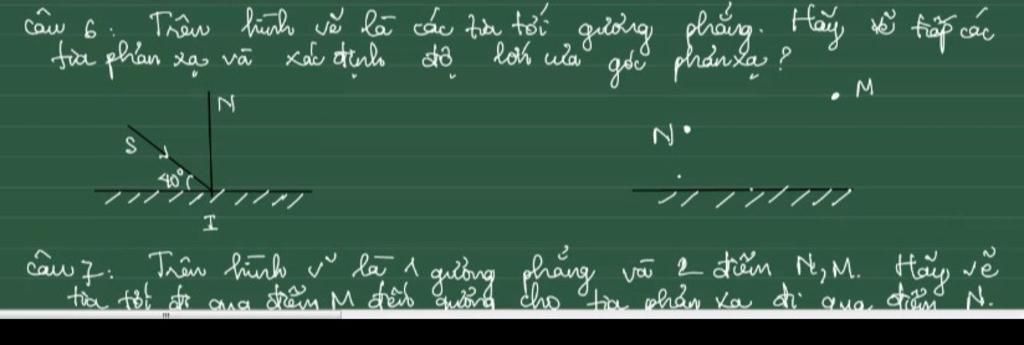 Câu 6: Trên hình vẽ là các tia tới gương phẳng. Hãy vẽ tiếp các
tia phản xạ và xác định độ lớn của góc phản xạ?
N
S
40°
I
M
N
Câu 7: Trên hình vẽ là 1 gương phẳng và 2 điểm N, M. Hãy vẽ
tia tới đi qua điểm M đến gương cho tia phản xạ đi qua điểm N.